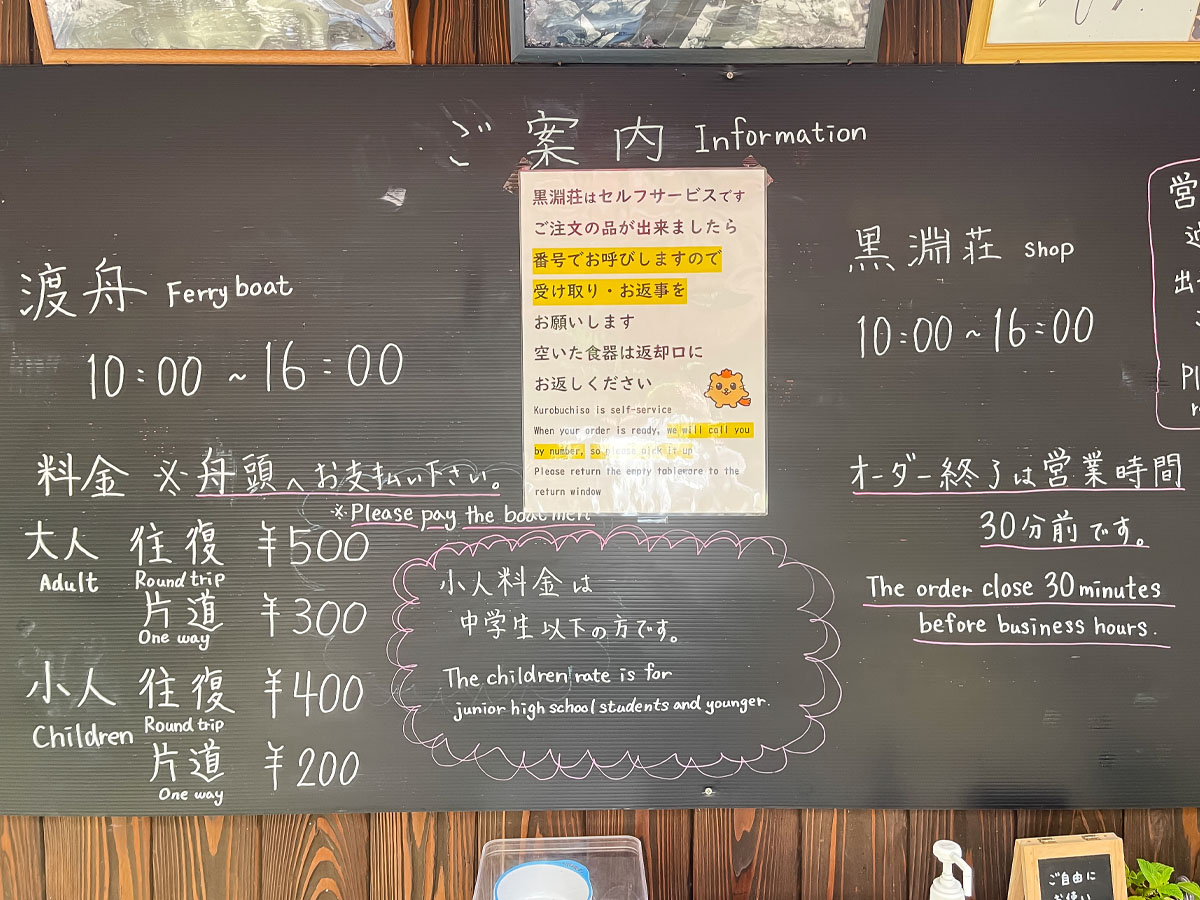 ご案内 Information
渡舟 Ferry boat
10:00～16:00
料金 ※舟頭へお支払い下さい。
※Please pay the boat men
大人 往復 ¥500
Adult Round trip
片道 ¥300
One way
小人 往復 ¥400
Children Round trip
片道 ¥200
One way
黒淵荘はセルフサービスです
ご注文の品が出来ましたら
番号でお呼びしますので
受け取り・お返事を
お願いします
空いた食器は返却口に
お返しください
Kurobuchiso is self-service
When your order is ready, we will call you
by number, so please pick it up
Please return the empty tableware to the
return window
小人料金は
中学生以下の方です。
The children rate is for
junior high school students and younger.
黒淵荘 shop
10:00～16:00
オーダー終了は営業時間
30分前です。
The order close 30 minutes
before business hours.
営
出
Pl
ご自由に
お使い